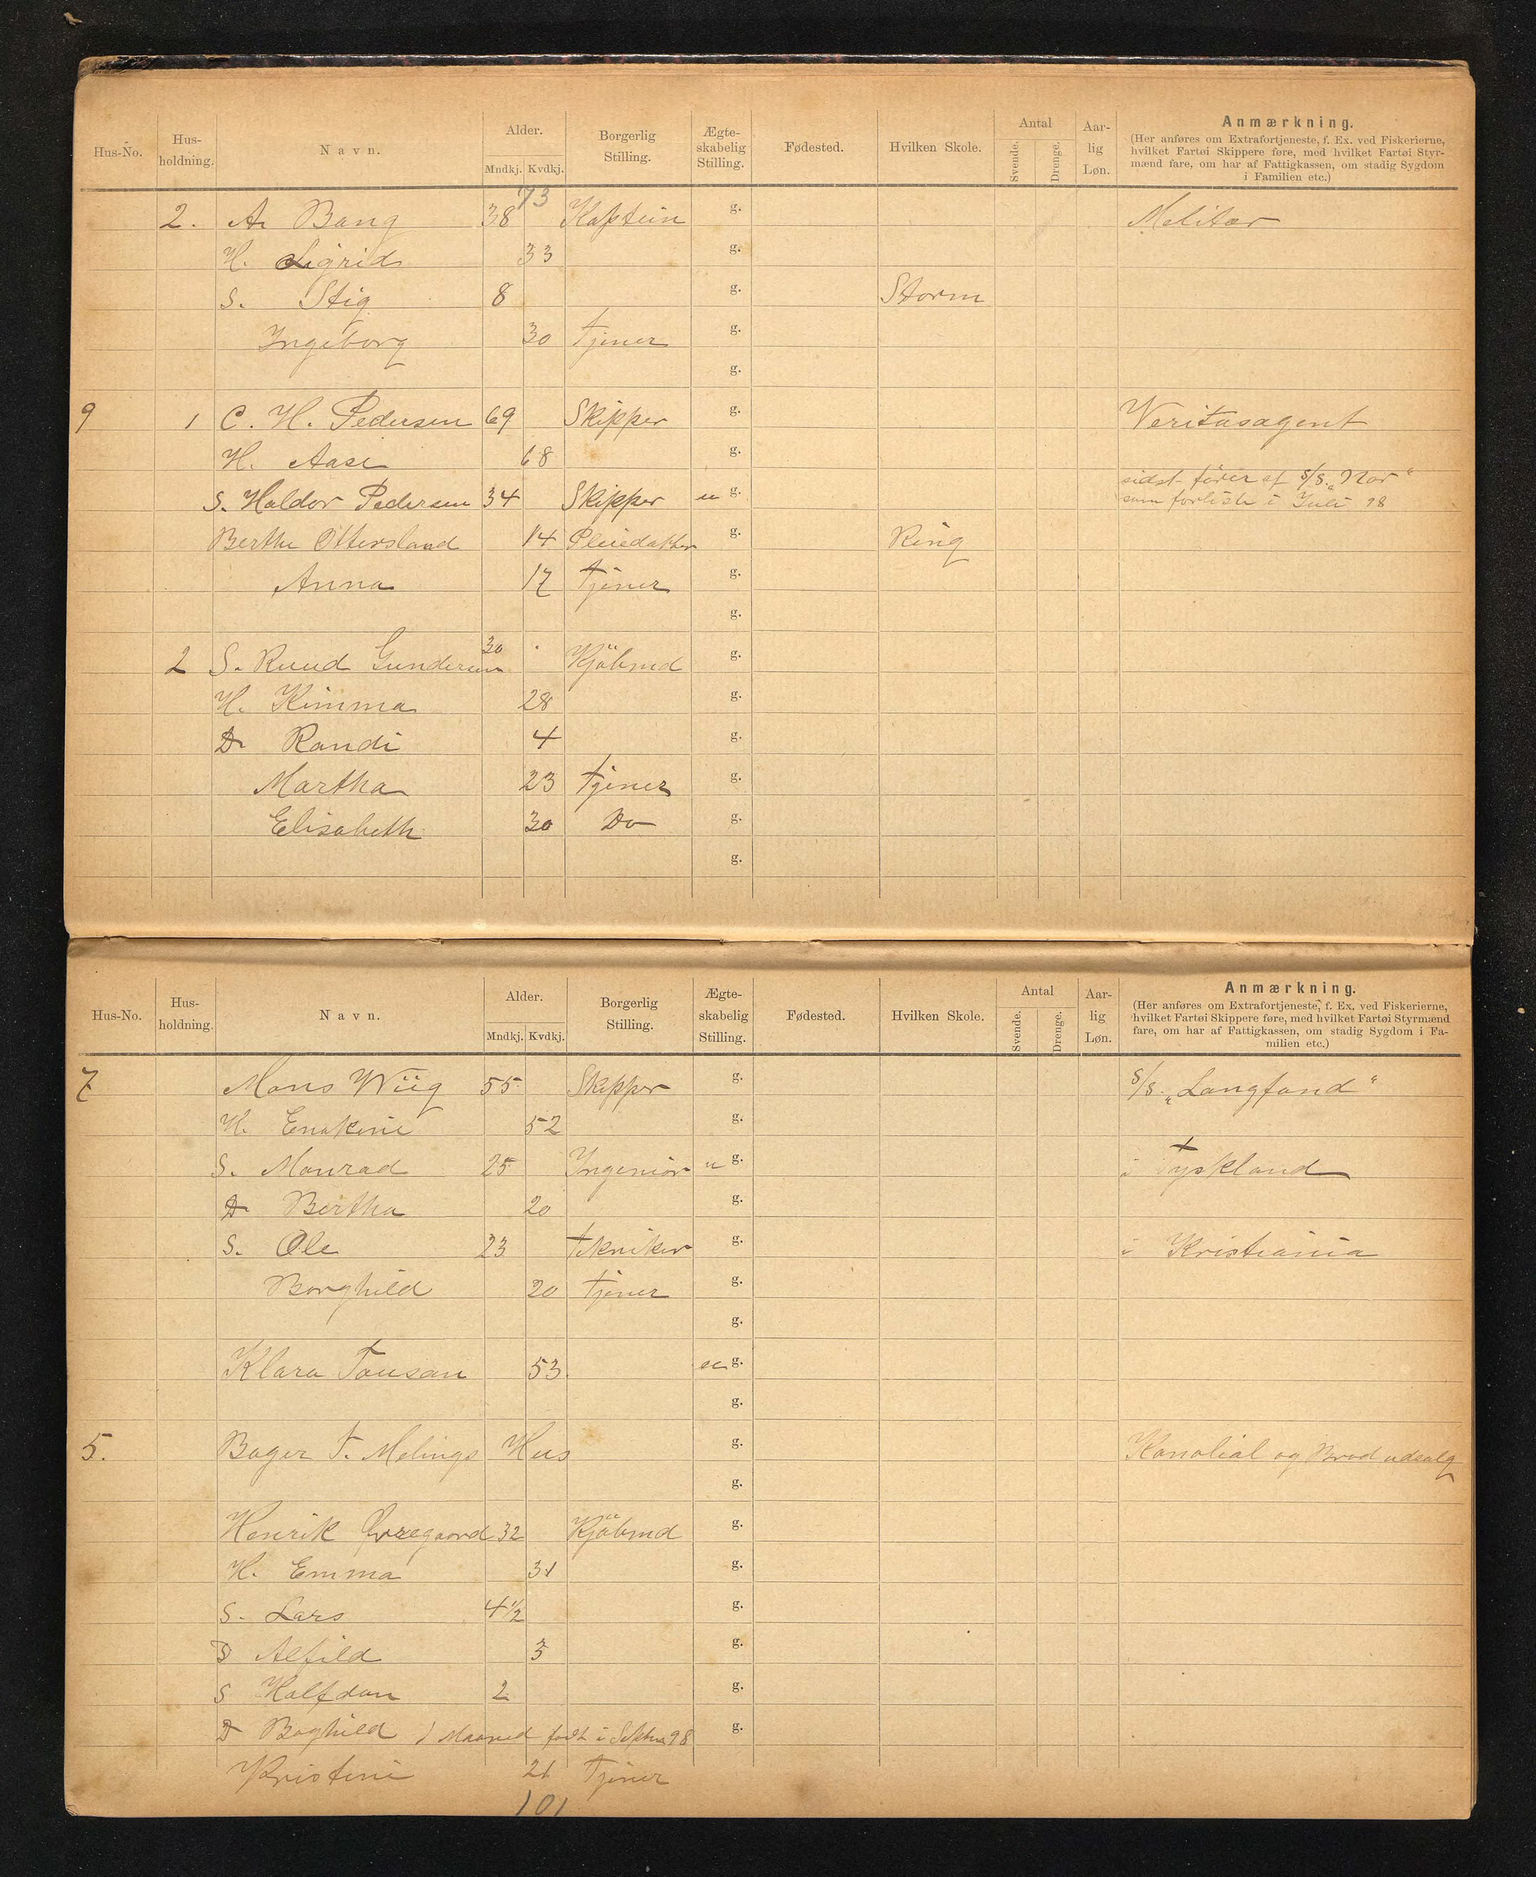 Hus-No. Hus-holdning. Navn. Alder. Mndkj. Kvdkj. Borgerlig Stilling. Ægte-skabelig Stilling. Fødested. Hvilken Skole. Antal Svende. Drenge. Aar-lig Løn. Anmærkning.
(Her anføres om Extrafortjeneste, f. Ex. ved Fiskerierne,
hvilket Fartøi Skippere føre, med hvilket Fartøi Styr-
mænd fare, om har af Fattigkassen, om stadig Sygdom
i Familien etc.)
73
2. A. Bang 38 Kaptein g. Melitær
H. Sigrid 33 g.
S. Stig 8 g. Storm
Ingeborg 30 Tjener g.
g.
9 1 C. H. Pedersen 69 Skipper g. Veritasagent
H. Aase 68 g.
sidst fører af S/S. „Nor"
S. Haldor Pedersen 34 Skipper u g. som forliste i Juli 98
Berthe Ottersland 14 Pleiedatter g. Ring
Anna 17 Tjener g.
g.
2 S. Ruud Gundersen 30 Kjöbmd g.
H. Kimma 28 g.
D. Randi 4 g.
Martha 23 Tjener g.
Elisabeth 30 Do g.
g.
Hus-No. Hus-holdning. Navn. Alder. Mndkj. Kvdkj. Borgerlig Stilling. Ægte-skabelig Stilling. Fødested. Hvilken Skole. Antal Svende. Drenge. Aar-lig Løn. Anmærkning.
(Her anføres om Extrafortjeneste, f. Ex. ved Fiskerierne,
hvilket Fartøi Skippere føre, med hvilket Fartøi Styrmænd
fare, om har af Fattigkassen, om stadig Sygdom i Fa-
milien etc.)
7 Mons Wiig 55 Skipper g. S/S. „Langfond"
H. Enokine 52 g.
S. Monrad 25 Ingeniør u g. i Tyskland
D. Bertha 20 g.
S. Ole 23 Tekniker g. i Kristiania
Borghild 20 Tjener g.
g.
Klara Tousan 53 u g.
g.
5. Bager T. Melings Hus g. Kanolial og Brød udsalg
g.
Henrik Øvregaard 32 Kjöbmd g.
H. Emma 31 g.
S. Lars 4½ g.
D Alfild 3 g.
S Halfdan 2 g.
D Boghild 1 Maaned født i Septbr 98 g.
Kristine 21 Tjener
101